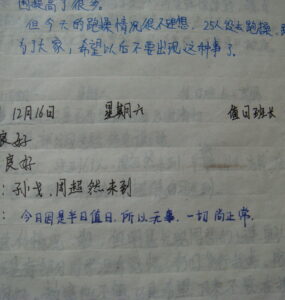 围提高了很多。
但今天的跑操情况很不理想，25人没去跑操，
了大家，希望以后不要出现这种事了。
12月16日 星期六 值日班长
良好
良好
：孙戈，周超然未到
：今日因是半日值日，所以无事，一切尚正常。